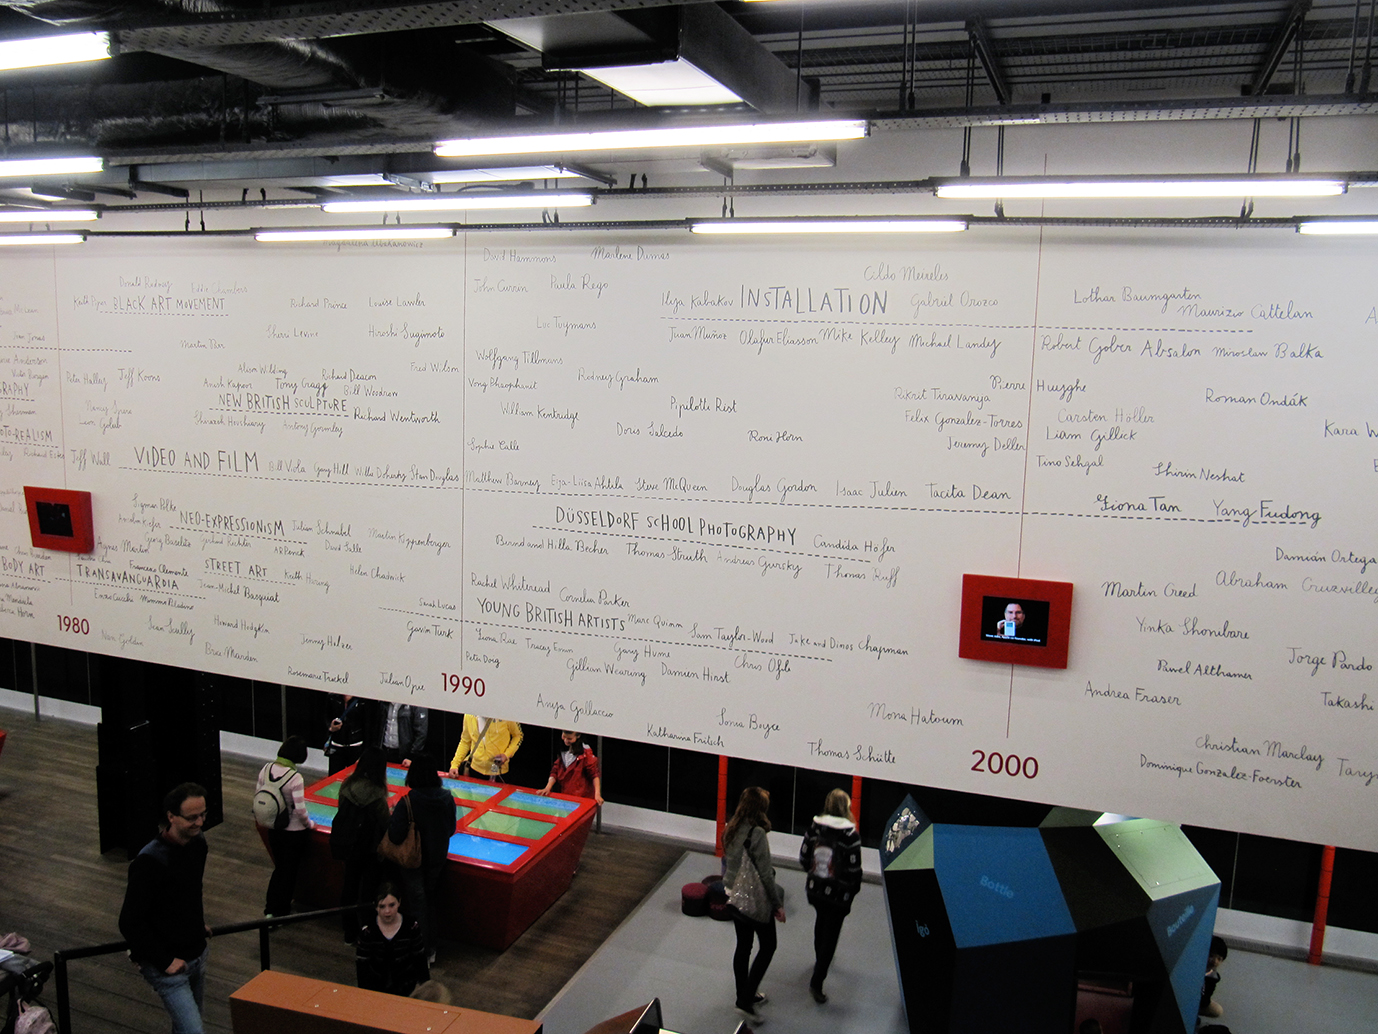 David Hammons
Marlene Dumas
Cildo Meireles
Donald Rodney
Eddie Chambers
John Currin
Paula Rego
Lothar Baumgarten
BLACK ART MOVEMENT
Richard Prince
Louise Lawler
Ilya Kabakov
INSTALLATION
Gabriel Orozco
Maurizio Cattelan
Sherri Levine
Hiroshi Sugimoto
Luc Tuymans
Juan Muñoz
Olafur Eliasson
Mike Kelley
Michael Landy
Robert Gober
Absalon
Miroslaw Balka
Martin Parr
Wolfgang Tillmans
Peter Halley
Jeff Koons
Alison Wilding
Richard Deacon
Fred Wilson
Anish Kapoor
Tony Cragg
Bill Woodrow
Rodney Graham
Pierre Huyghe
Rikrit Tiravanija
Roman Ondák
NEW BRITISH SCULPTURE
Richard Wentworth
William Kentridge
Pipilotti Rist
Felix Gonzalez-Torres
Carsten Höller
Leon Golub
Antony Gormley
Doris Salcedo
Roni Horn
Jeremy Deller
Liam Gillick
Kara W
Sophie Calle
Tino Sehgal
Shirin Neshat
Jeff Wall
VIDEO AND FILM
Bill Viola
Gary Hill
Willie Doherty
Stan Douglas
Matthew Barney
Eija-Liisa Ahtila
Steve McQueen
Douglas Gordon
Isaac Julien
Tacita Dean
Fiona Tan
Yang Fudong
Sigmar Polke
Anselm Kiefer
NEO-EXPRESSIONISM
Julian Schnabel
Martin Kippenberger
DÜSSELDORF SCHOOL PHOTOGRAPHY
Candida Höfer
Georg Baselitz
Gerhard Richter
AR Penck
David Salle
Bernd and Hilla Becher
Thomas Struth
Andreas Gursky
Thomas Ruff
Damián Ortega
Agnes Martin
Francesco Clemente
STREET ART
Keith Haring
Helen Chadwick
BODY ART
TRANSAVANGUARDIA
Jean-Michel Basquiat
Rachel Whiteread
Cornelia Parker
Martin Creed
Abraham Cruzvilleg
Enzo Cucchi
Mimmo Paladino
Sarah Lucas
YOUNG BRITISH ARTISTS
Marc Quinn
Sam Taylor-Wood
Jake and Dinos Chapman
Yinka Shonibare
1980
Sean Scully
Howard Hodgkin
Jenny Holzer
Gavin Turk
Fiona Rae
Tracey Emin
Gary Hume
Chris Ofili
Jorge Pardo
Nan Goldin
Brice Marden
Peter Doig
Gillian Wearing
Damien Hirst
Pawel Althamer
Rosemarie Trockel
Julian Opie
1990
Andrea Fraser
Takashi
Anya Gallaccio
Sonia Boyce
Mona Hatoum
Katharina Fritsch
Thomas Schütte
2000
Christian Marclay
Dominique Gonzalez-Foerster
Bottle